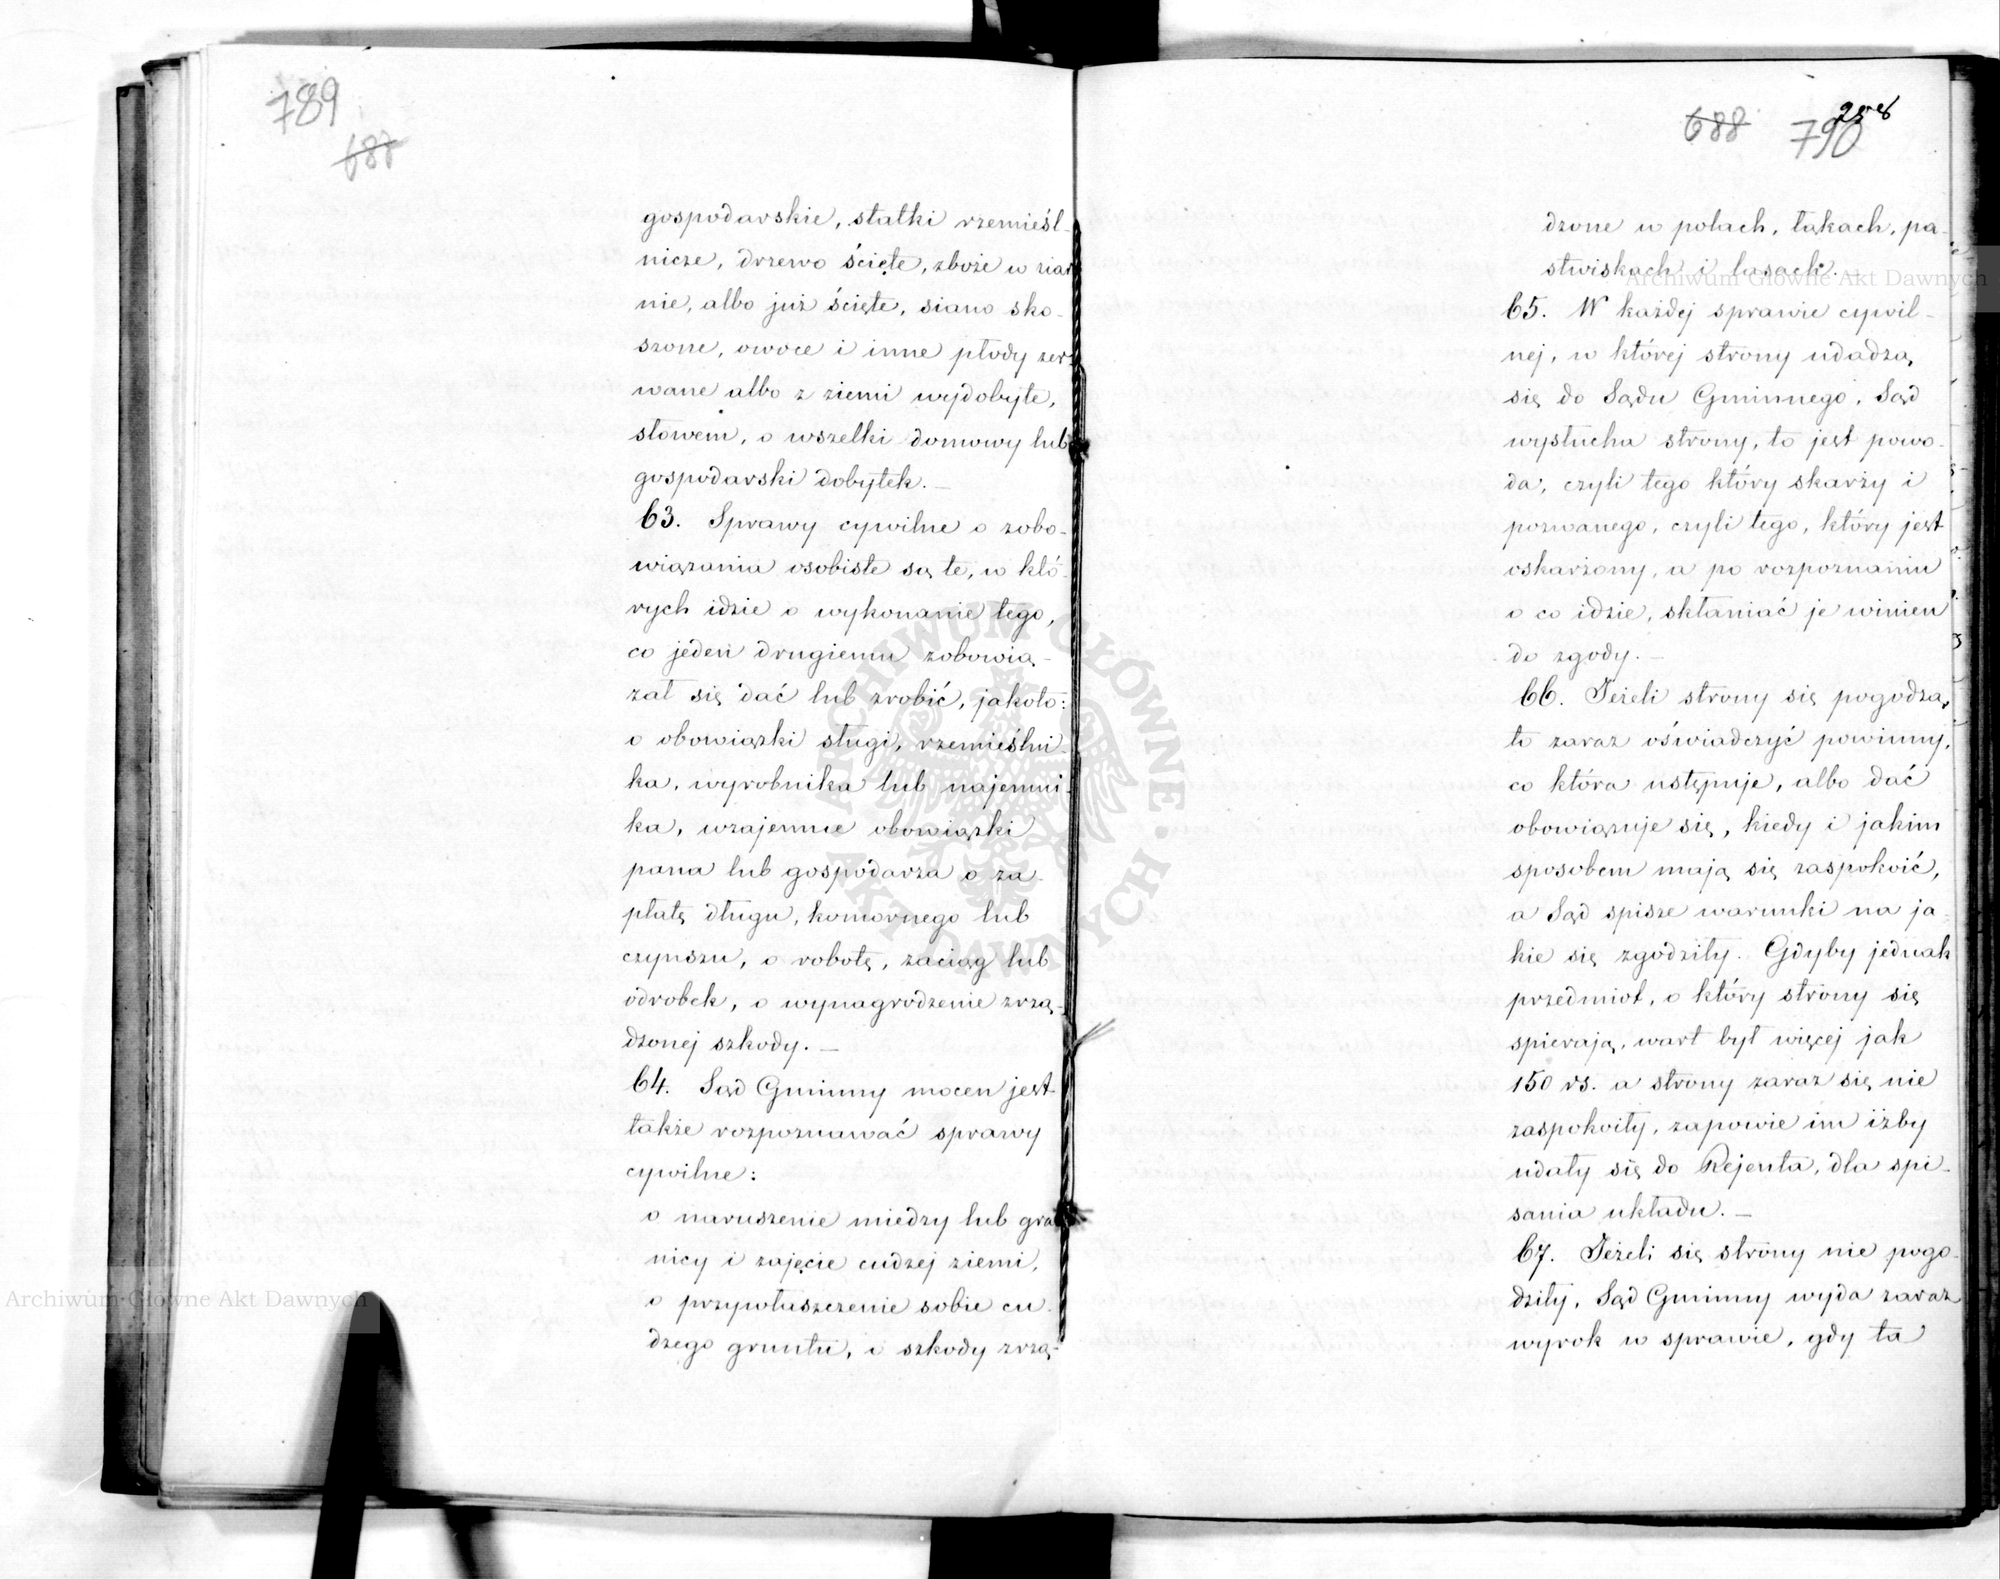 789
687
gospodarskie, statki rzemieśl-
nicze, drzewo ścięte, zboże w ziar
nie, albo już ścięte, siano sko-
szone, owoce i inne płody zer-
wane albo z ziemi wydobyte,
słowem, o wszelki domowy lub
gospodarski dobytek. —
63. Sprawy cywilne o zobo-
wiązania osobiste są te, w któ-
rych idzie o wykonanie tego,
co jeden drugiemu zobowią-
zał się dać lub zrobić, jakoto:
o obowiązki sługi, rzemieślni-
ka, wyrobnika lub najemni-
ka, wzajemne obowiązki
pana lub gospodarza o za-
płatę długu, komornego lub
czynszu, o robotę, zaciąg lub
odrobek, o wynagrodzenie zrzą-
dzonej szkody. —
64. Sąd Gminny mocen jest
także rozpoznawać sprawy
cywilne:
o naruszenie miedzy lub gra
nicy i zajęcie cudzej ziemi,
o przywłaszczenie sobie cu-
dzego gruntu, i szkody zrzą-
688 790
258
dzone w polach, łąkach, pa-
stwiskach i lasach.
65. W każdej sprawie cywil-
nej, w której strony udadzą
się do Sądu Gminnego, Sąd
wysłucha strony, to jest powo-
da, czyli tego który skarży i
pozwanego, czyli tego, który jest
oskarżony, a po rozpoznaniu
o co idzie, skłaniać je winien
do zgody. —
66. Jeżeli strony się pogodzą,
to zaraz oświadczyć powinny,
co która ustępuje, albo dać
obowiązuje się, kiedy i jakim
sposobem mają się zaspokoić,
a Sąd spisze warunki na ja-
kie się zgodziły. Gdyby jednak
przedmiot, o który strony się
spierają, wart był więcej jak
150 rs. a strony zaraz się nie
zaspokoiły, zapowie im iżby
udały się do Rejenta, dla spi-
sania układu. —
67. Jeżeli się strony nie pogo-
dziły, Sąd Gminny wyda zaraz
wyrok w sprawie, gdy ta
Archiwum Główne Akt Dawnych
Archiwum Główne Akt Dawnych
ARCHIWUM GŁÓWNE · AKT DAWNYCH ·